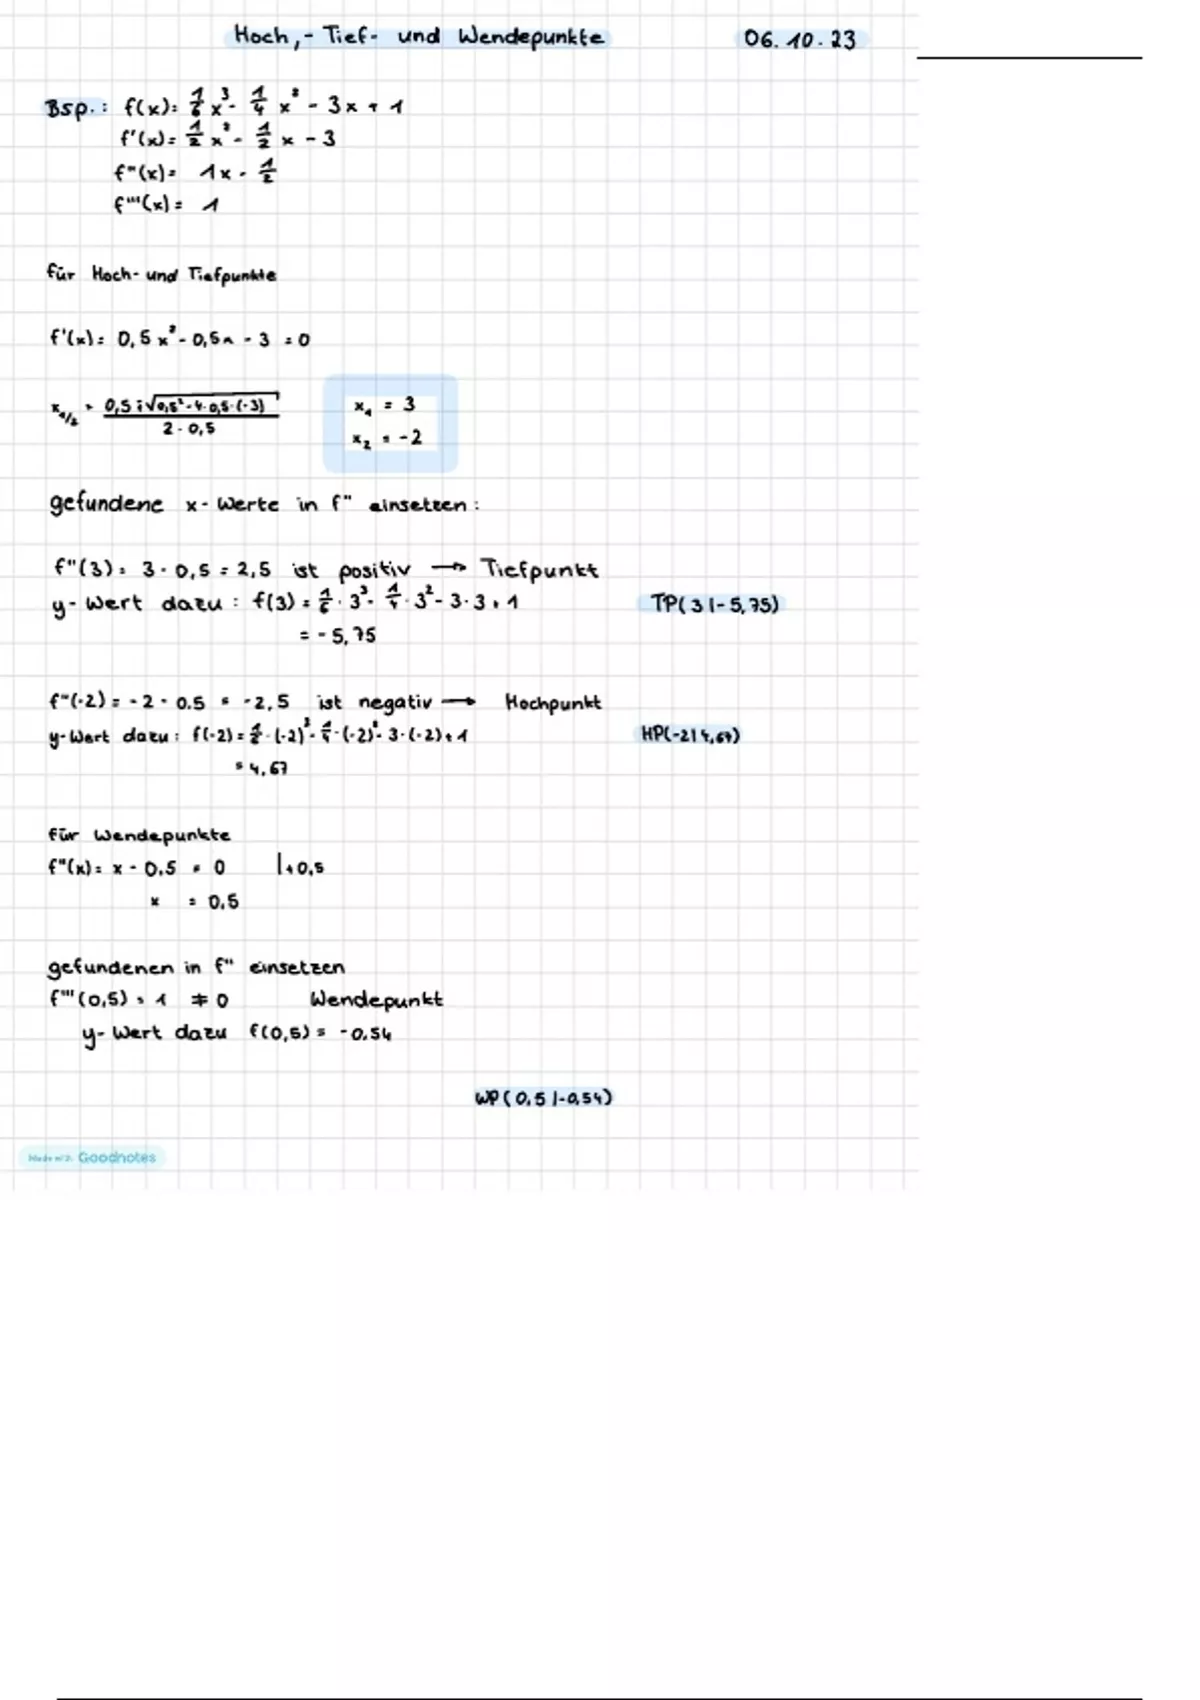 Hoch,- Tief- und Wendepunkte 06.10.23
Bsp.: f(x)= 1/6 x³ - 1/4 x² - 3x + 1
f'(x)= 1/2 x² - 1/2 x - 3
f"(x)= 1x - 1/2
f'''(x)= 1
für Hoch- und Tiefpunkte
f'(x)= 0,5x² - 0,5x - 3 = 0
x₁/₂ = (0,5 ± √(0,5² - 4·0,5·(-3))) / (2·0,5) x₁ = 3
x₂ = -2
gefundene x-Werte in f" einsetzen:
f"(3) = 3 - 0,5 = 2,5 ist positiv → Tiefpunkt
y-Wert dazu: f(3) = 1/6 · 3³ - 1/4 · 3² - 3·3 + 1 TP(3|-5,75)
= -5,75
f"(-2) = -2 - 0.5 = -2,5 ist negativ → Hochpunkt
y-Wert dazu: f(-2) = 1/6 · (-2)³ - 1/4 · (-2)² - 3·(-2) + 1 HP(-2|4,67)
= 4,67
für Wendepunkte
f"(x) = x - 0,5 = 0 |+0,5
x = 0,5
gefundenen in f''' einsetzen
f'''(0,5) = 1 ≠ 0 Wendepunkt
y-Wert dazu f(0,5) = -0.54
WP(0,5|-0,54)
Goodnotes